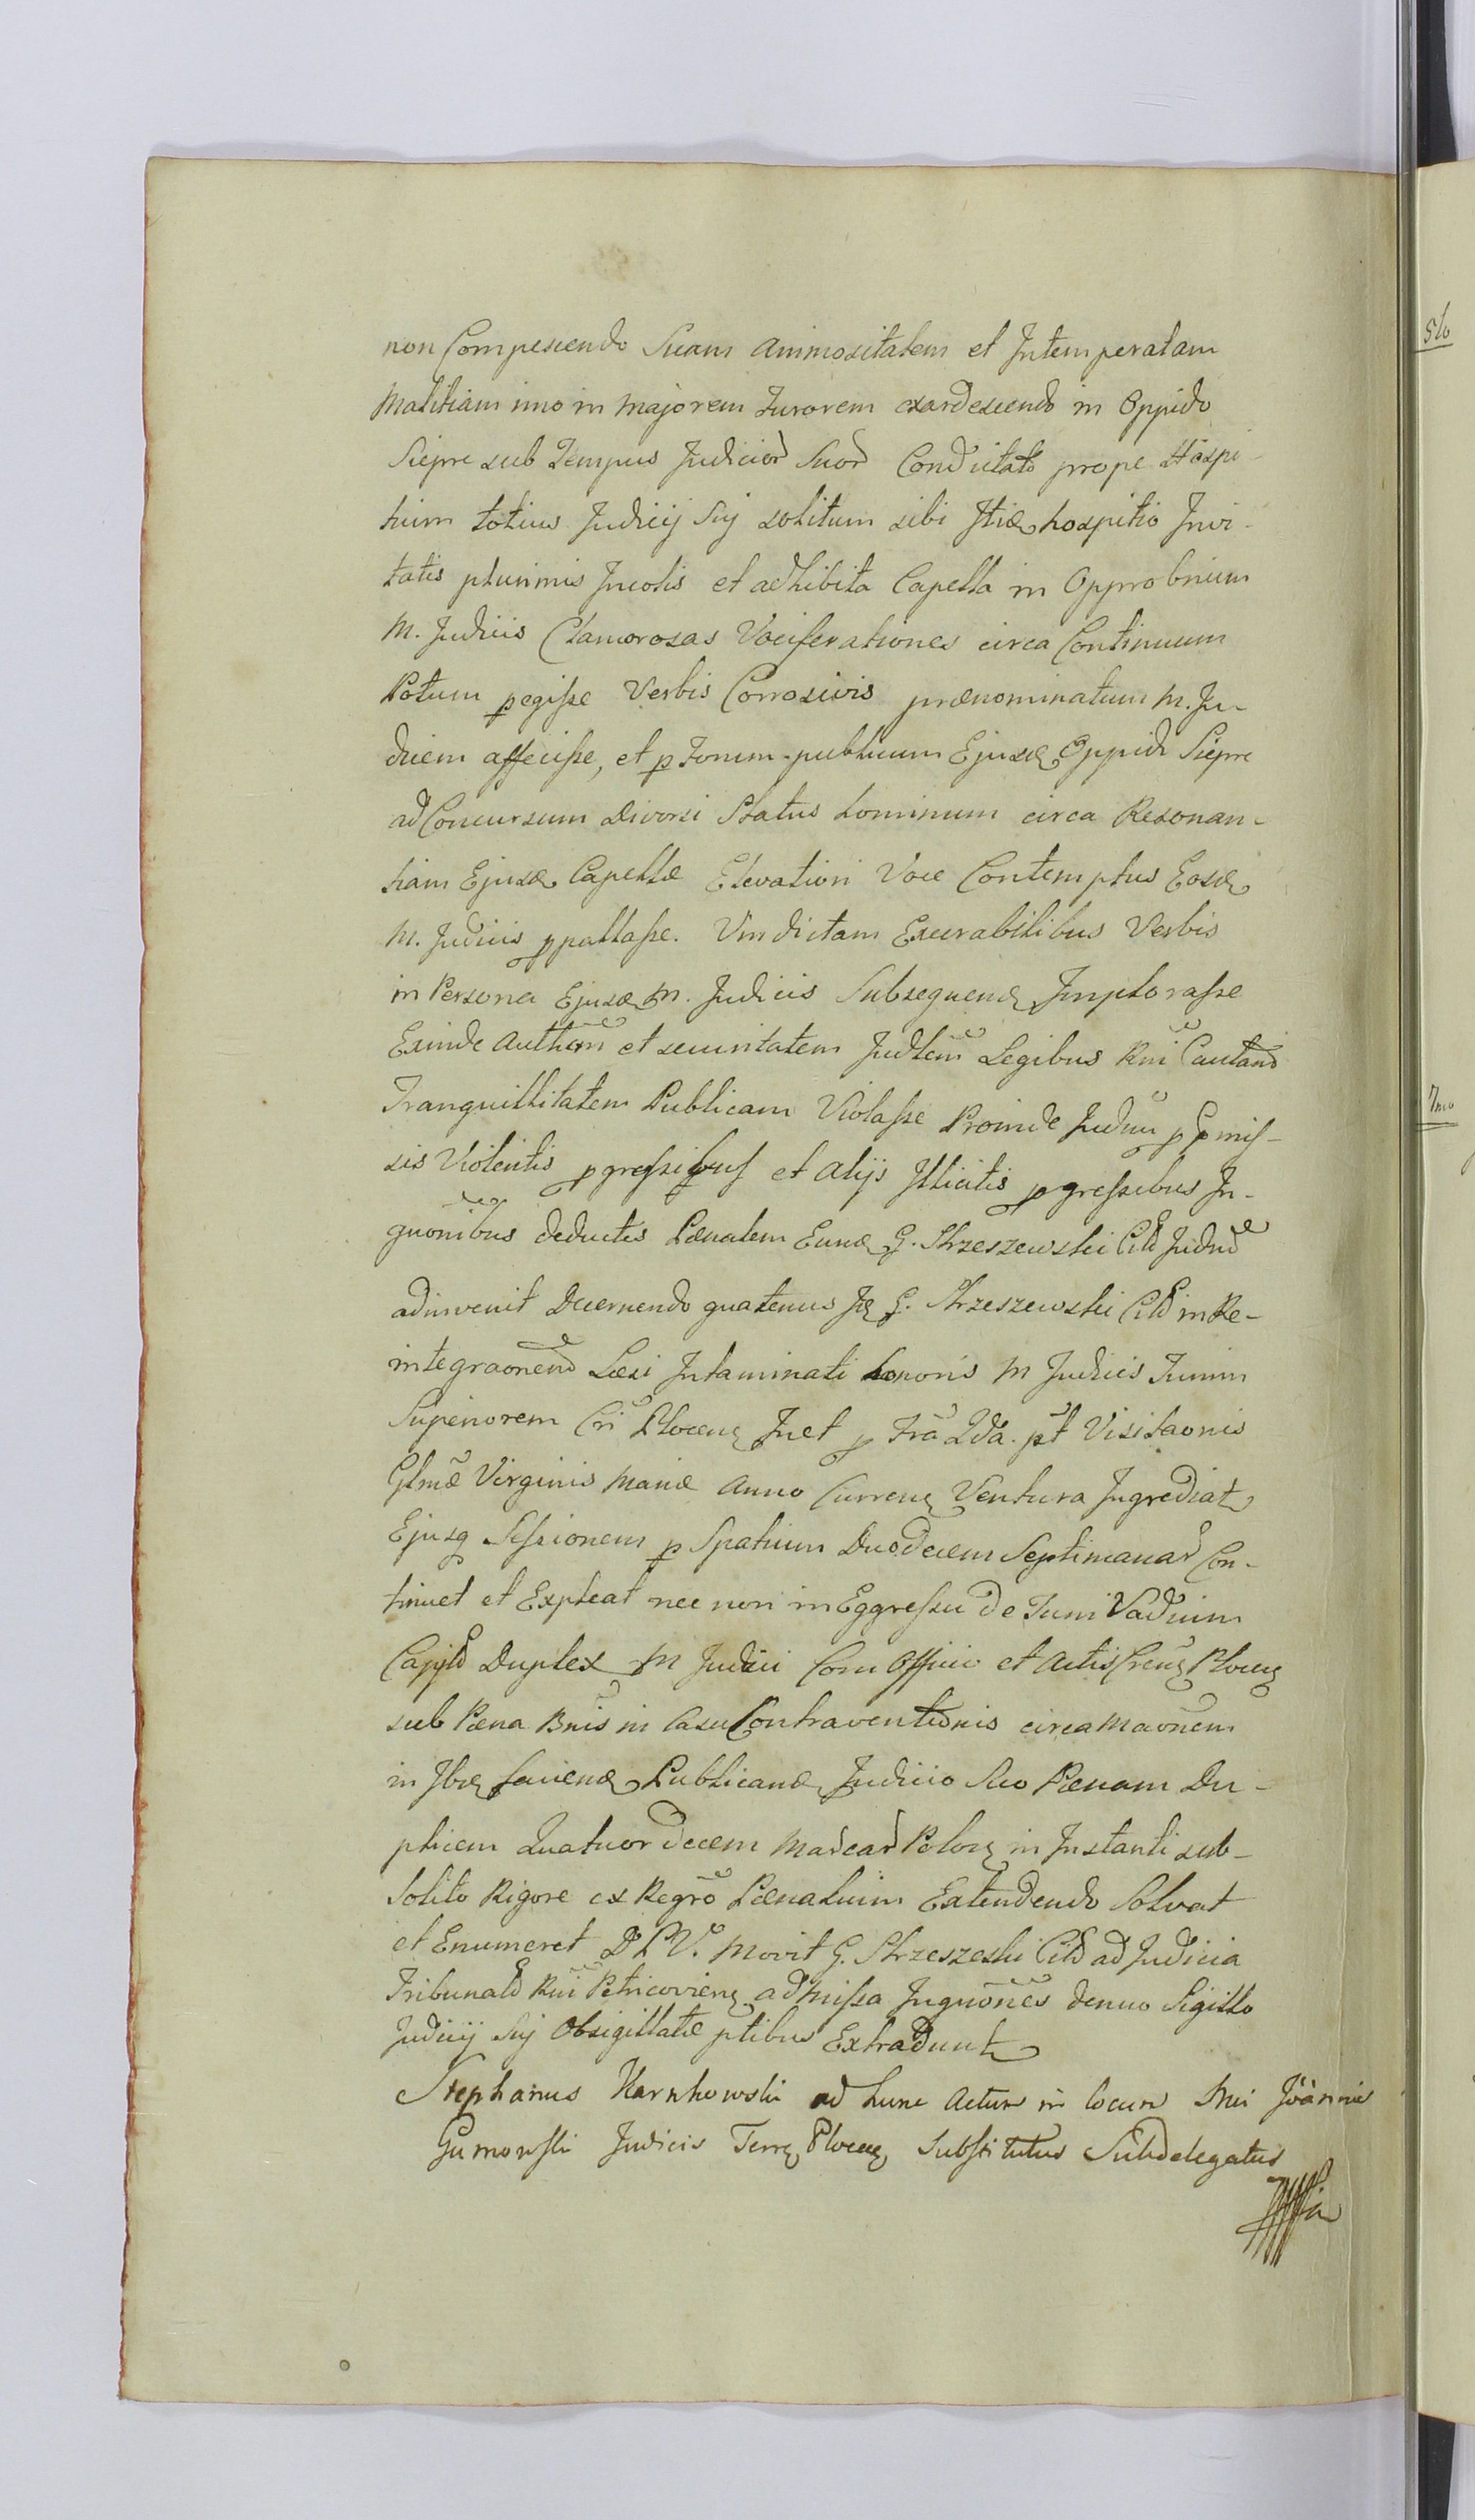 non Compescendo Suam animositatem et Intemperatam
Malitiam imo in majorem Furorem exardescendo in Oppido
Siepre sub Tempus Judicior Suor Condictato prope Hospi-
tium totius Judicij Sij solitum sibi Jtide hospitio Invi-
tatis plurimis Incolis et adhibita Capella in Opprobrium
M. Judicis Clamorosas Vociferationes circa Continuum
Potum pegisse Verbis Corrosivis prænominatum M. Ju-
dicem affecisse, et p Forum publicum Ejusd Oppidi Siepre
ad Concursum Diversi Status hominum circa Resonan-
tiam Ejusd Capellæ Elevatiori Voce Contemptus Eosd
M. Judicis ppallasse. Vindictam Execrabilibus Verbis
in Persona Ejusd M. Judicis Subsequend Implorasse
Exinde Authem et securitatem Judlem Legibus Rni Cautam
Tranquillitatem Publicam Violasse Proinde Judm p pmis-
sis Violentis pgressibus et alijs Illicitis pgressibus In-
quonibus deductis Pænalem Eund G. Skrzeszewski Citd Judm
adinvenit Decernendo quatenus Id G. Skrzeszewski Citd in Re-
integraonem Læsi Intaminati honoris M Judicis Turrim
Superiorem Cri Plocen Inet p Fra 2da. pt Visitaonis
Glmæ Virginis Mariæ Anno Curren Ventura Ingrediat
Ejusq Sessionem p Spatium Duodecem Septimanar Con-
tinuet et Expleat nec non in Eggressu de Turri Vadium
Captd Duplex M Judici Coru Officio et Actis Cren Plocen
sub Pæna Bnis in Casu Contraventionis circa Maonem
in faciend Publicand Judicio Suo Pænam Du-
plicem Quatuordecem Marcar Polon in Instanti sub-
Solito Rigore ex Regro Pænalium Extendendo Solvat
et Enumeret D P V. Movit G. Skrzeszeski Citd ad Judicia
Tribunald Rni Petricovien admissa Inquones denuo Sigillo
Judicij Sij Obsigillatæ ptibus Extradunt
Stephanus Karnkowski ad hunc Actum in locum Mci Joannis
Gumowski Judicis Terre Plocen Substitutus Subdelegatus
5to
7mo